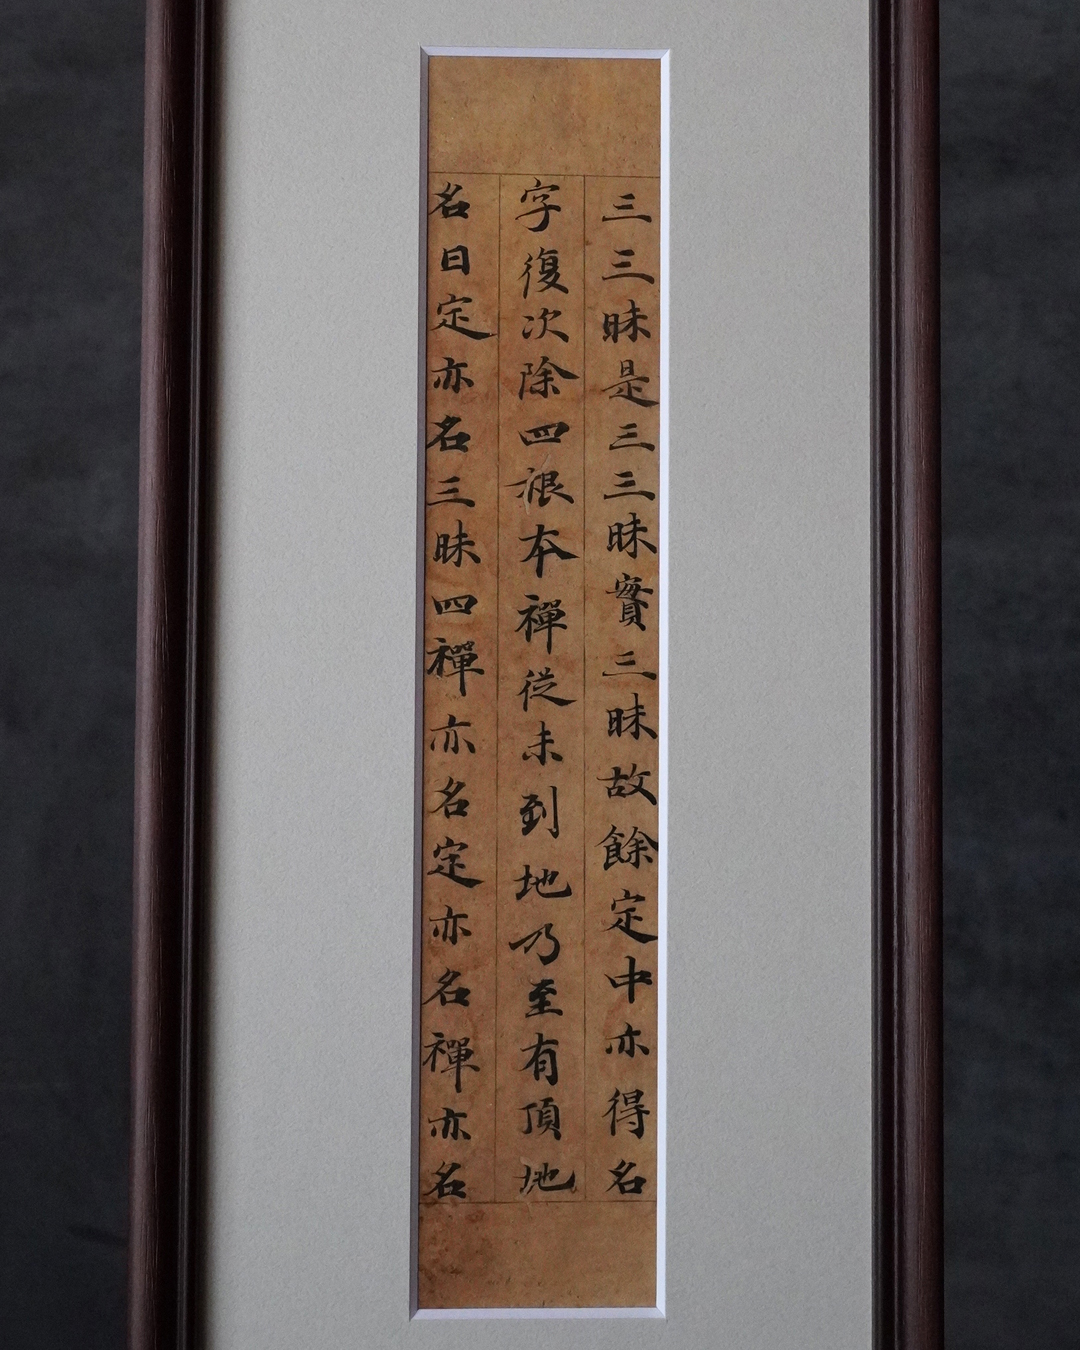 三三昧是三三昧實三昧故餘定中亦得名
字復次除四根本禪從未到地乃至有頂地
名曰定亦名三昧四禪亦名定亦名禪亦名